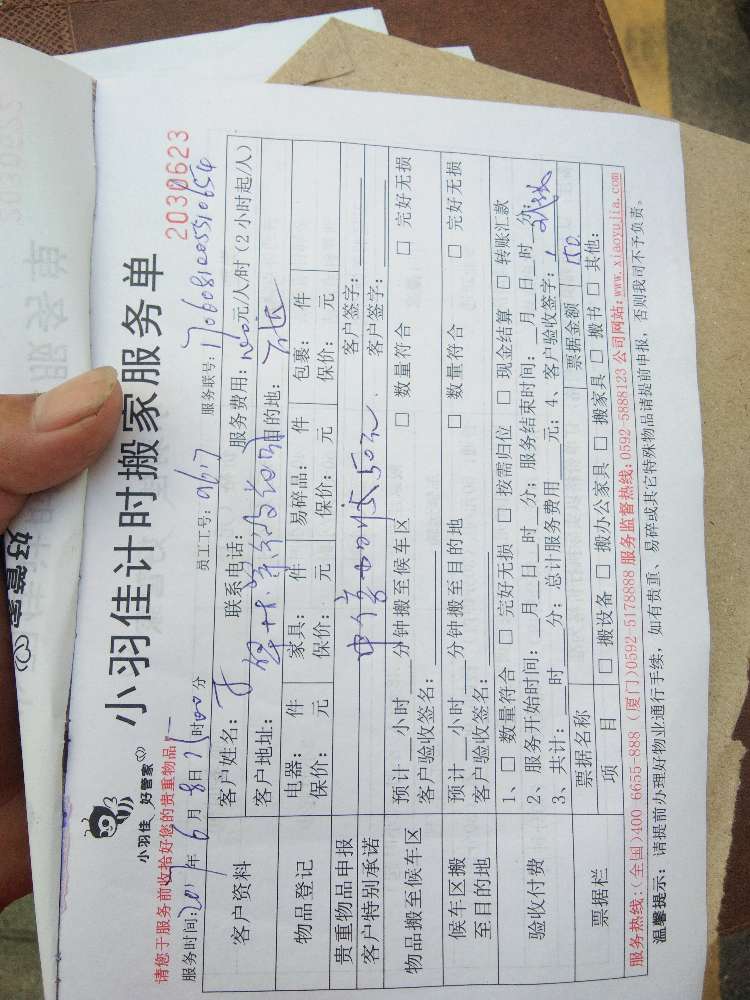 好管家
小羽佳 好管家
小羽佳计时搬家服务单
2030623
请您于服务前收拾好您的贵重物品
服务时间:2017年6月8日15时00分 员工工号:9617 服务联号:17060810055310654
客户资料
客户姓名: 联系电话: 服务费用: 元/人/时(2小时起/人)
客户地址: 目的地:
物品登记
电器: 件 家具: 件 易碎品: 件 包裹: 件
保价: 元 保价: 元 保价: 元 保价: 元
贵重物品申报 客户签字:
客户特别承诺 客户签字:
物品搬至候车区
预计__小时__分钟搬至候车区 □ 数量符合 □ 完好无损
客户验收签名:
候车区搬至目的地
预计__小时__分钟搬至目的地 □ 数量符合 □ 完好无损
客户验收签名:
验收付费
1、□ 数量符合 □ 完好无损 □ 按需归位 □ 现金结算 □ 转账汇款
2、服务开始时间:__月__日__时__分;服务结束时间:__月__日__时__分
3、共计:__时__分;总计服务费用____元;4、客户验收签字:
票据栏
票据名称 票据金额 150
项目 □ 搬设备 □ 搬办公家具 □ 搬家具 □ 搬书 □ 其他:
服务热线:(全国)400 6655-888 (厦门)0592-5178888 服务监督热线:0592-5888123 公司网站:www.xiaoyujia.com
温馨提示:请提前办理好物业通行手续,如有贵重、易碎或其它特殊物品请提前申报,否则我司不予负责。